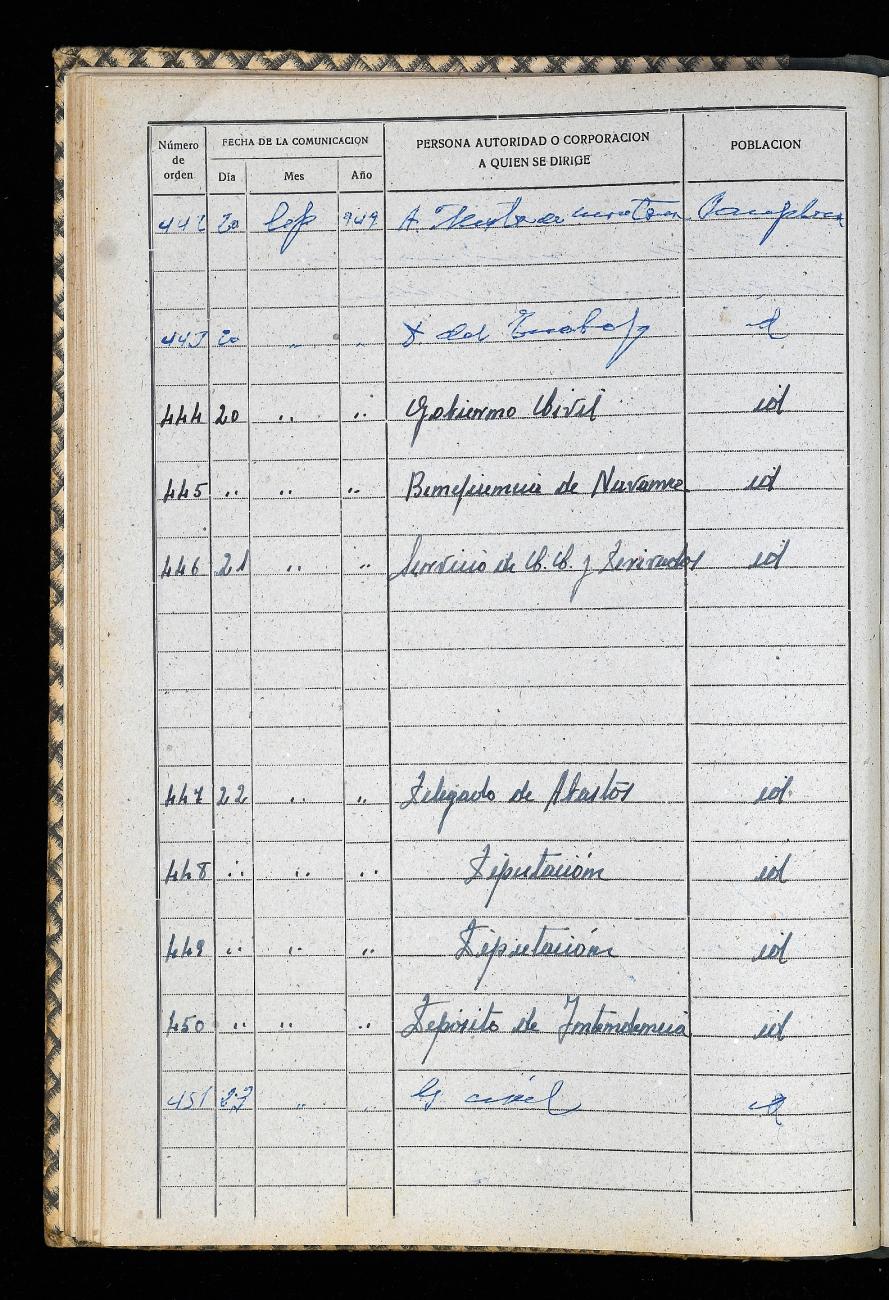 Número de orden FECHA DE LA COMUNICACION PERSONA AUTORIDAD O CORPORACION A QUIEN SE DIRIGE POBLACION
Día Mes Año
442 20 Sep 949 A Pamplona
443 20 " " D del Trabajo id
444 20 " " Gobierno Civil id
445 " " " Beneficencia de Navarra id
446 21 " " Servicio de C.C. y Derivados id
447 22 " " Delegado de Abastos id
448 " " " Diputación id
449 " " " Diputación id
450 " " " Depósito de Intendencia id
451 23 " " G civil id